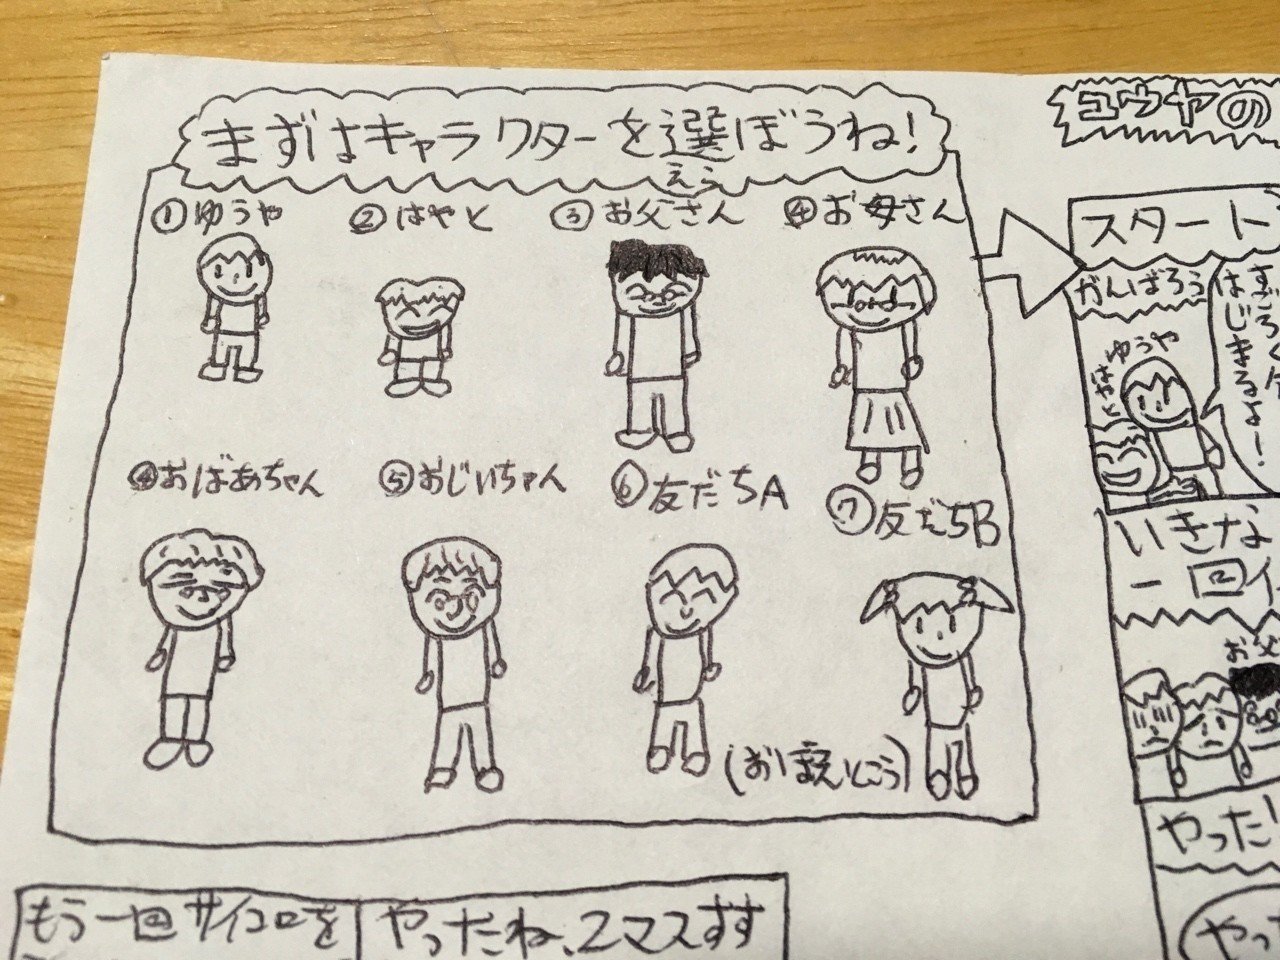 まずはキャラクターを選ぼうね!
えら
①ゆうや
②はやと
③お父さん
④お母さん
④おばあちゃん
⑤おじいちゃん
⑥友だちA
⑦友だちB
(おぼえとこう)
ユウヤの
スタート
がんばろう
すごろく
はじまるよ!
ゆうや
はやと
いきな
一回
お父
やった!
やっ
もう一回サイコロを
やったね、2マスすす